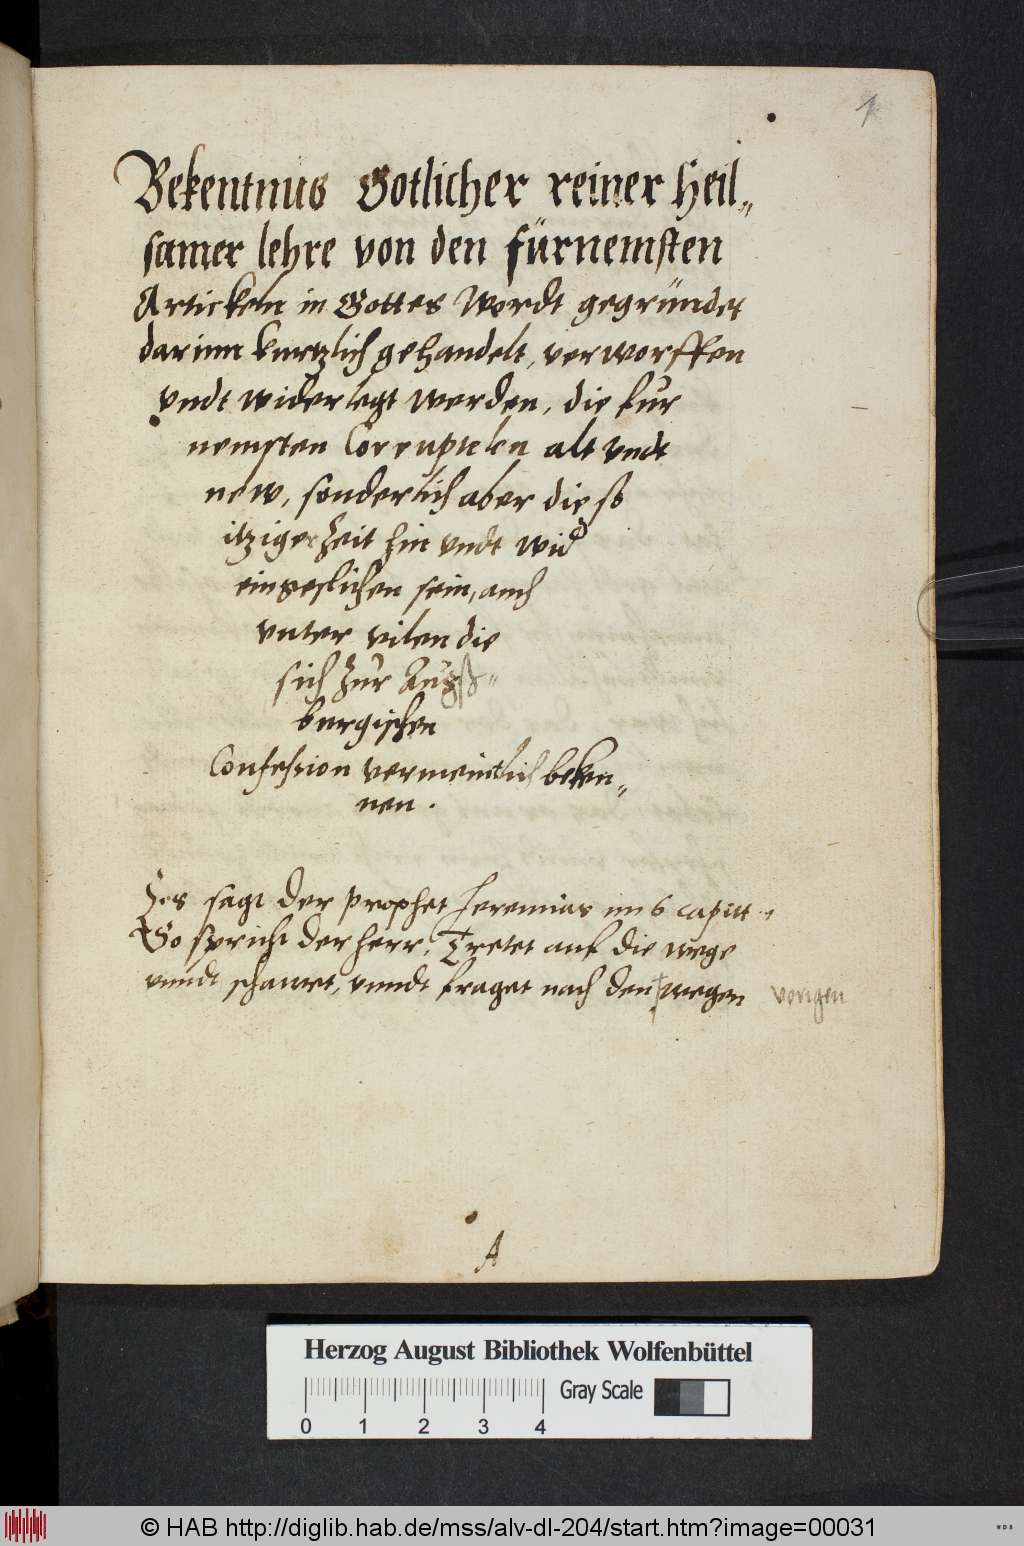 1
Bekentnus Gotlicher reiner Heil„
samer lehre von den fürnemsten
Artickeln in Gottes Wordt gegründet
darinn kurtzlich gehandelt, verworffen
vndt widerlegt werden, die fur
nemsten Corruptelen alt vndt
new, sonderlich aber die so
itziger Zeit hin vndt wid
eingeslichen sein, auch
vnter vilen die
sich Zur Augß„
burgischen
Confession vermeintlich beken„
nen.
sagt der Prophet Jeremias im 6 capitt
So spricht der Herr, Tretet auf die wege
vnndt schawet, vnndt fraget nach den wegen vorigen
A
Herzog August Bibliothek Wolfenbüttel
Gray Scale
0 1 2 3 4
© HAB http://diglib.hab.de/mss/alv-dl-204/start.htm?image=00031